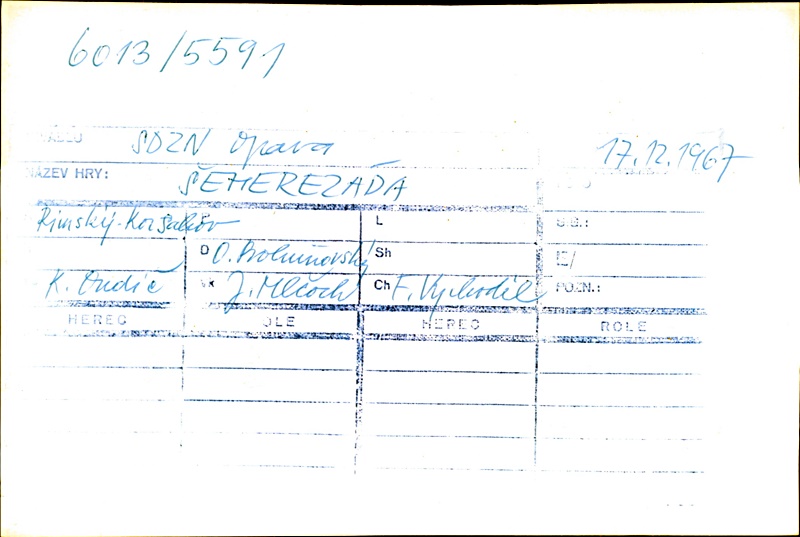 6013/5591
SDZN Opava 17.12.1967
NÁZEV HRY: ŠEHEREZÁDA
Rimský-Korsakov L
D O. Bohuňovský Sh
K. J. Mlčoch Ch F. Vychodil POZN.:
HEREC ROLE HEREC ROLE